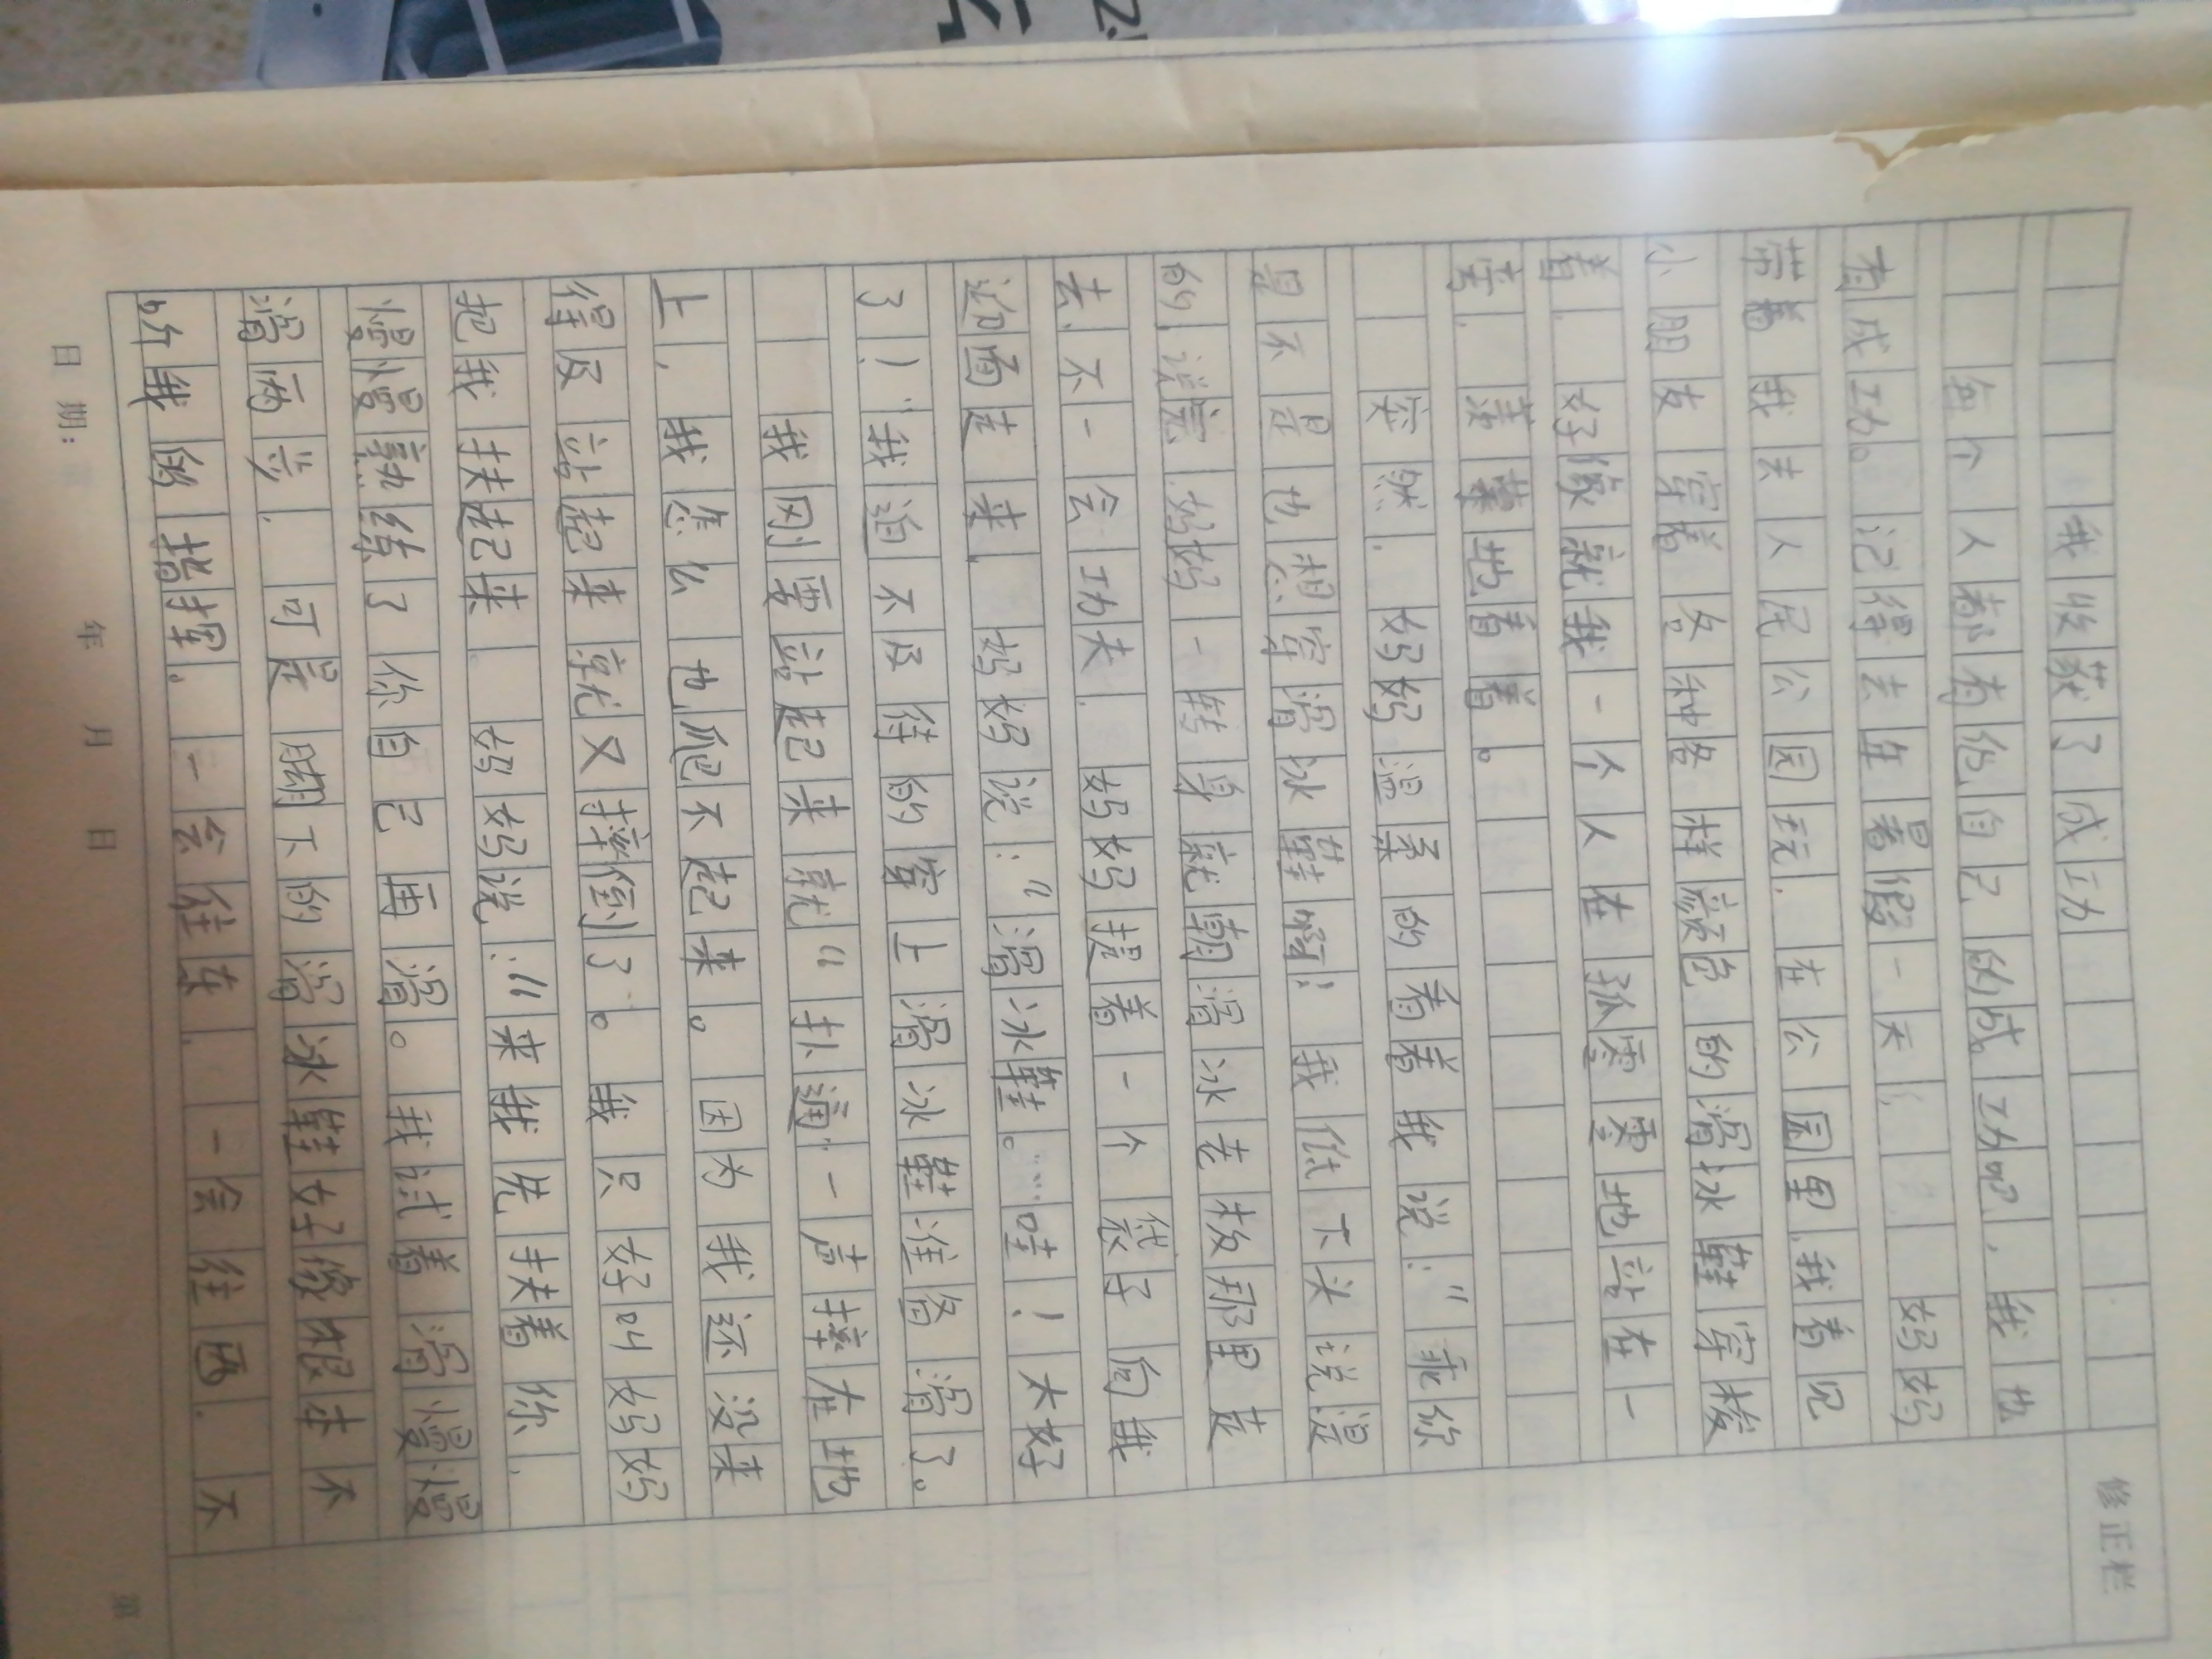 我收获了成功
每个人都有他自己的成功吧，我也
有成功。记得去年暑假一天，妈妈
带着我去人民公园玩，在公园里，我看见
小朋友穿着各种各样颜色的滑冰鞋穿梭
着，好像就我一个人在孤零零地站在一
旁，羡慕地看着。
突然，妈妈温柔的看着我说：“乖你
是不是也想穿滑冰鞋啊！我低下头说是
的，说完，妈妈一转身就朝滑冰老板那里走
去，不一会功夫，妈妈提着一个袋子向我
迎面走来，妈妈说：“滑冰鞋。……哇！太好
了！”我迫不及待的穿上滑冰鞋准备滑了。
我刚要站起来就“扑通”一声摔在地
上，我怎么也爬不起来。因为我还没来
得及站起来就又摔倒了。我只好叫妈妈
把我扶起来，妈妈说：“来我先扶着你，
慢慢熟练了你自己再滑。我试着滑慢慢
滑两步，可是脚下的滑冰鞋好像根本不
听我的指挥。一会往东，一会往西，不
日期： 年 月 日
修正栏
第